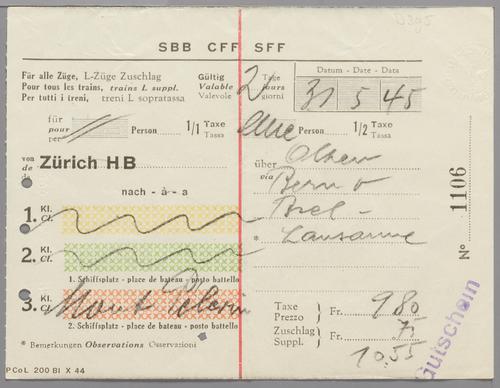 SBB CFF SFF
Für alle Züge, L-Züge Zuschlag
Pour tous les trains, trains L suppl.
Per tutti i treni, treni L sopratassa
Gültig
Valable
Valevole
2
Tage
jours
giorni
Datum - Date - Data
31 5 45
für
pour
per
Person
1/1 Taxe
Tassa
Person
1/2 Taxe
Tassa
von
de
da
Zürich HB
über
via
Olten
Bern
Lausanne
nach - à - a
1. Kl.
Cl.
2. Kl.
Cl.
1. Schiffsplatz - place de bateau - posto battello
3. Kl.
Cl.
Mont Pélerin
2. Schiffsplatz - place de bateau - posto battello
* Bemerkungen Observations Osservazioni
*
Taxe
Prezzo
Fr. 9 80
Zuschlag
Suppl.
Fr. 75
10.55
Nº 1106
Gutschein
P Co L 200 Bl X 44